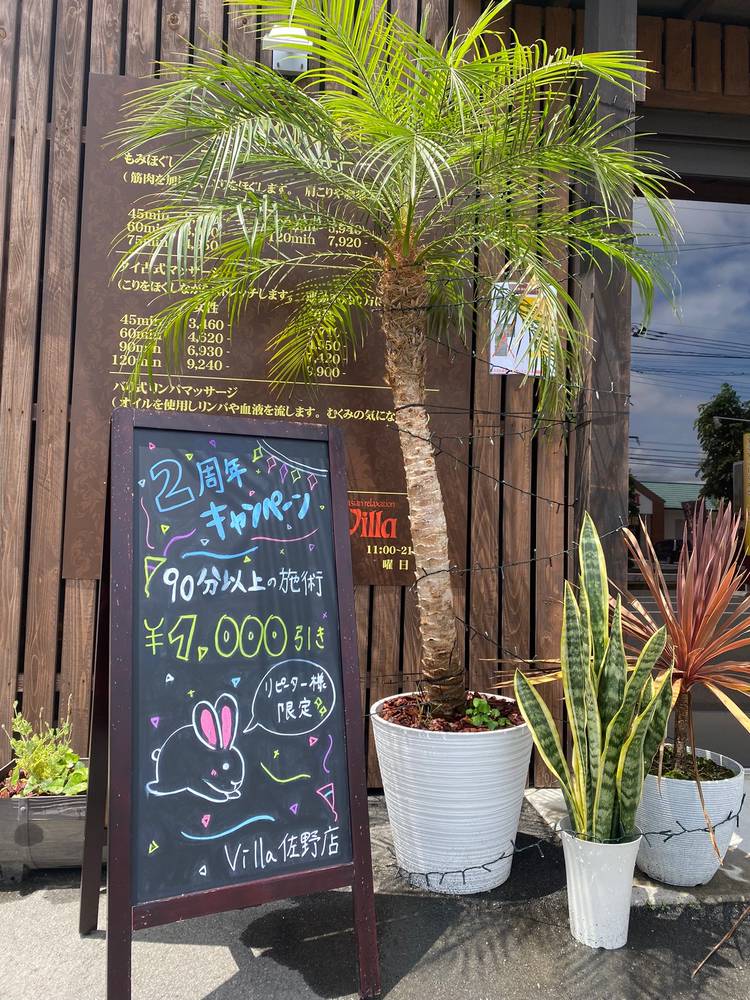 もみほぐし
45min
60min
75min
120min 7,920-
タイ古式マッサージ
女性
45min 3,460-
60min 4,620-
90min 6,930-
120min 9,240-
バリ式リンパマッサージ
(オイルを使用しリンパや血液を流します。むくみの気にな
asian relaxation
Villa
11:00~21
曜日
2周年
キャンペーン
90分以上の施術
¥1,000引き
リピーター様
限定
Villa佐野店